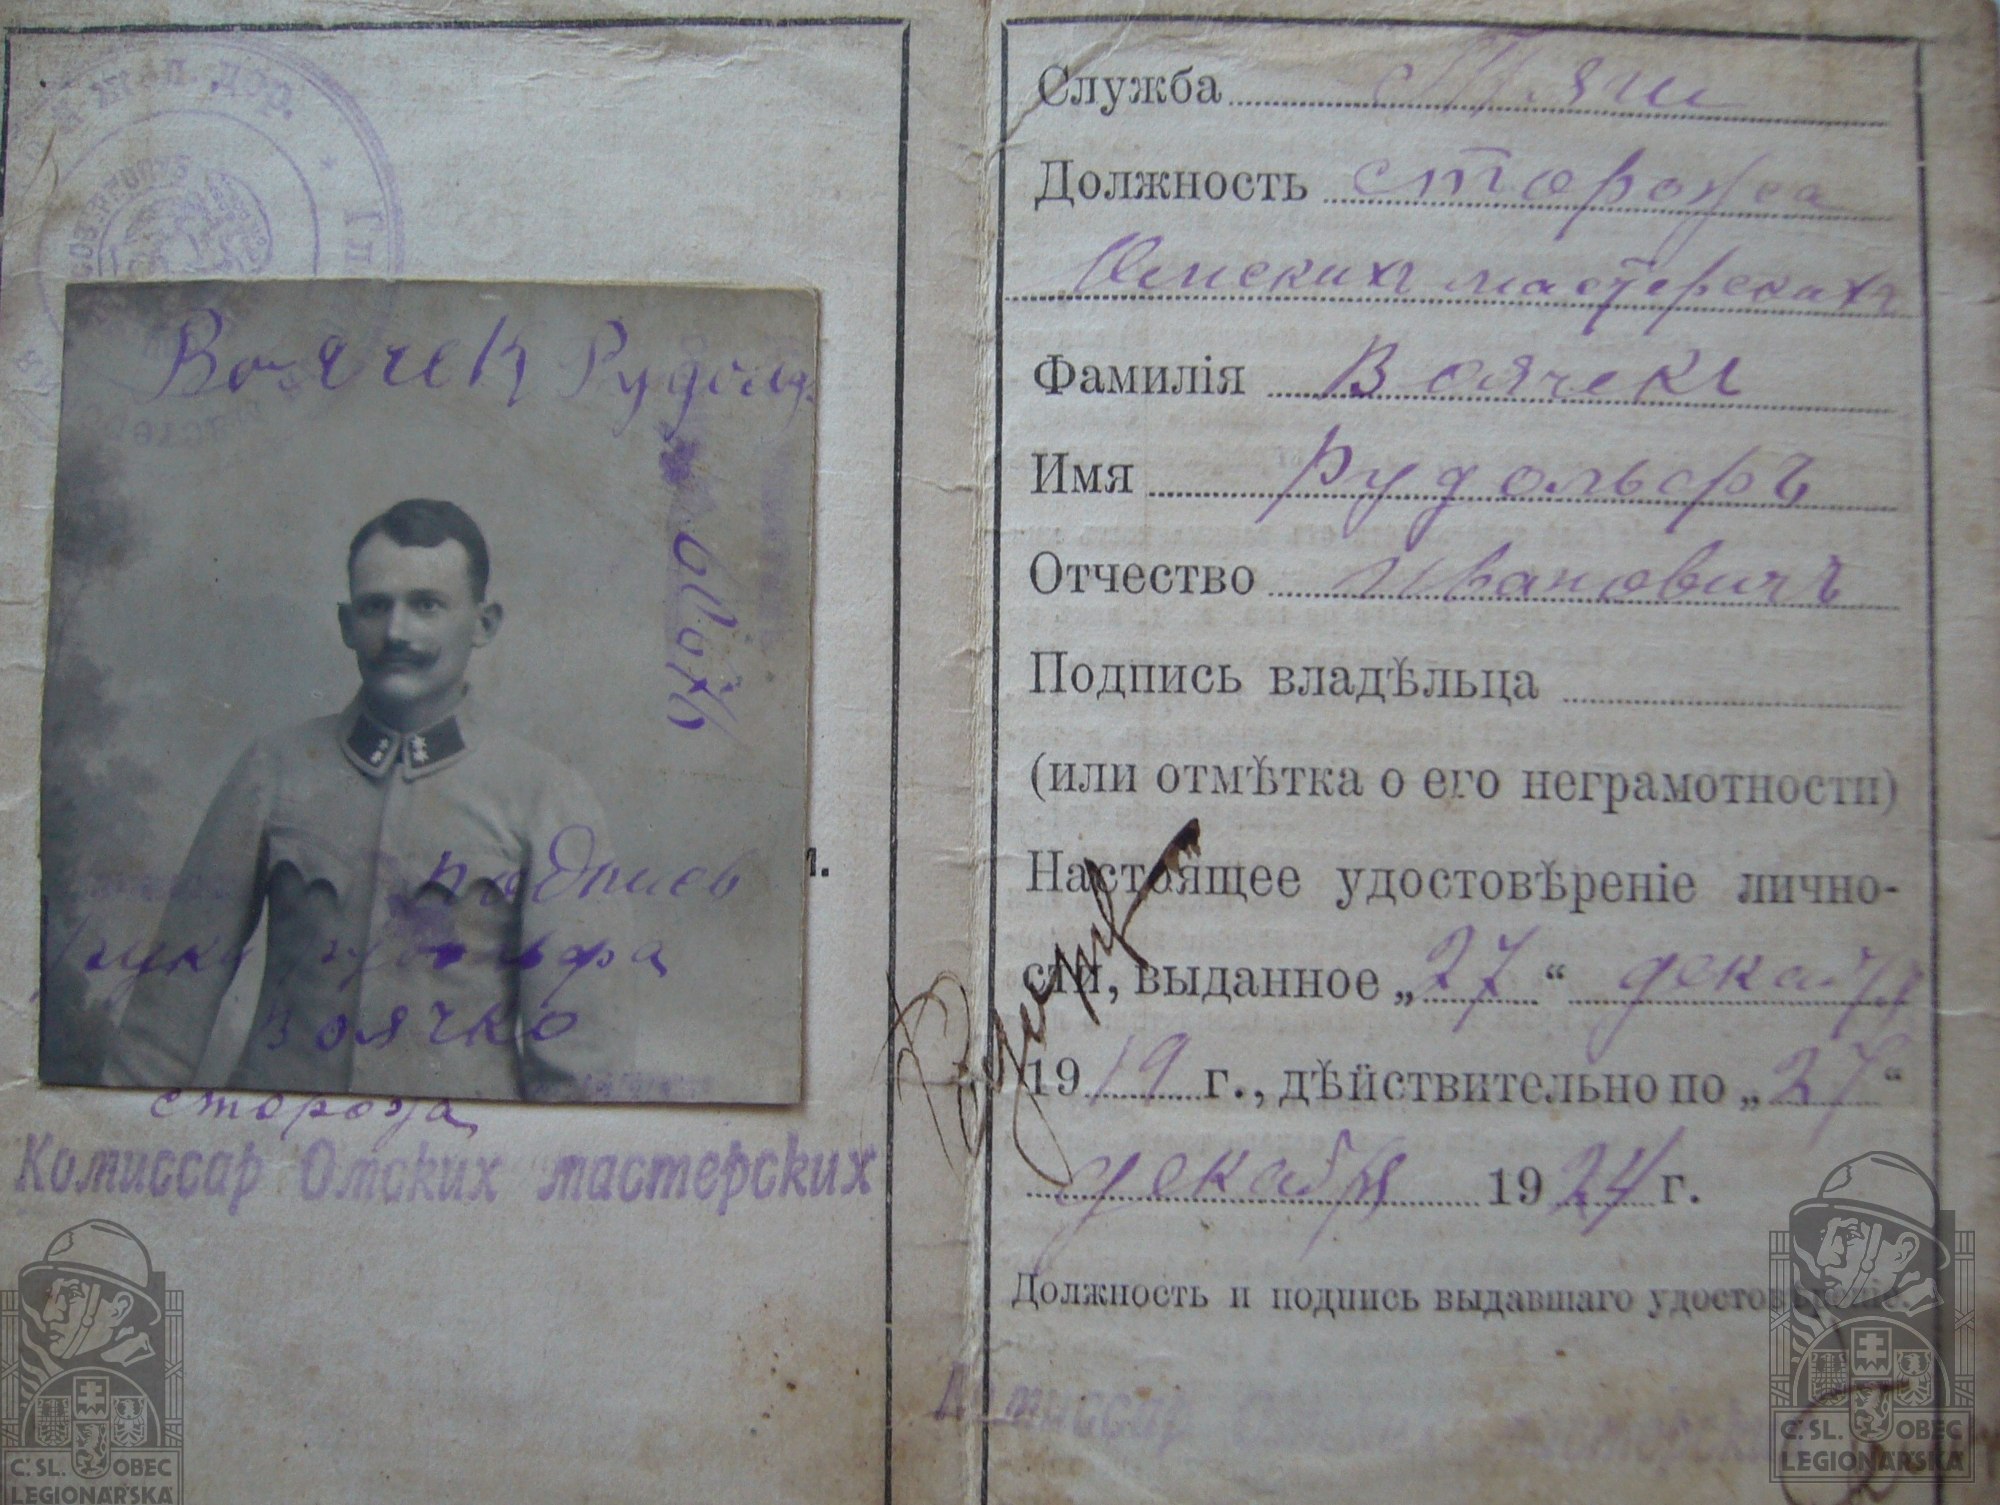 жел. дор.
Воячек Рудольф
подпись
руку Рудольфа
Воячко
сторожа
Комиссар Омских мастерских
Служба Тяги
Должность сторожа
Омскихъ мастерскихъ
Фамилія Воячекъ
Имя Рудольфъ
Отчество Ивановичъ
Подпись владѣльца
(или отмѣтка о его неграмотности)
Настоящее удостовѣреніе лично-
сти, выданное „27“ декабря
1919 г., дѣйствительно по „27“
декабря 1924 г.
Должность и подпись выдавшаго удостовѣреніе.
Комиссар
Č. SL. OBEC
LEGIONÁŘSKÁ
Č. SL. OBEC
LEGIONÁŘSKÁ